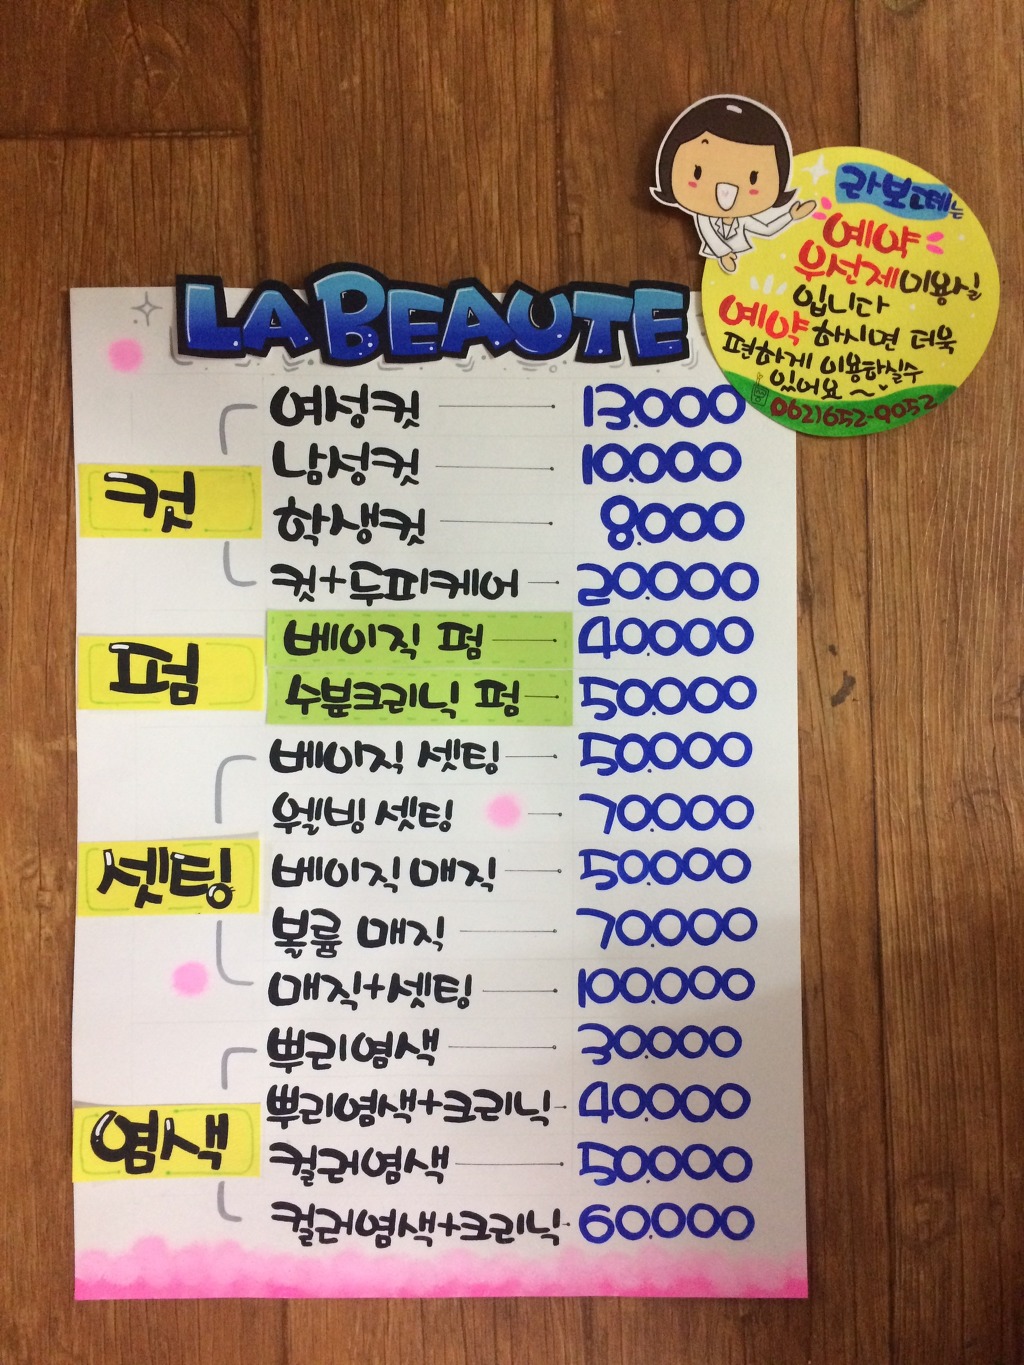 라보떼는
예약
우선제 미용실
입니다
예약 하시면 더욱
편하게 이용하실수
있어요~
062)652-9052
LA BEAUTE
컷
여성컷 13.000
남성컷 10.000
학생컷 8.000
컷+두피케어 20.000
펌
베이직 펌 40.000
수분크리닉 펌 50.000
셋팅
베이직 셋팅 50.000
웰빙 셋팅 70.000
베이직 매직 50.000
볼륨 매직 70.000
매직+셋팅 100.000
염색
뿌리염색 30.000
뿌리염색+크리닉 40.000
컬러염색 50.000
컬러염색+크리닉 60.000